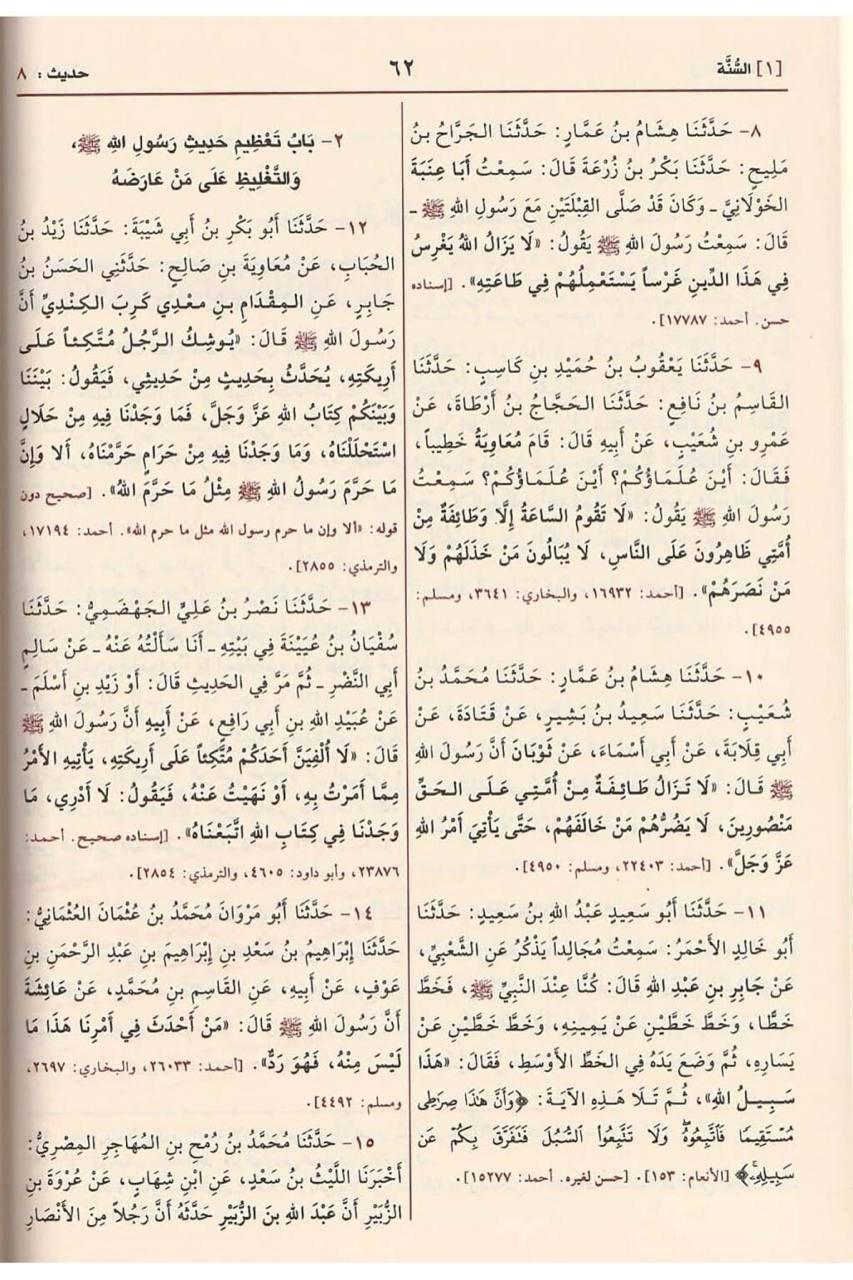 [١] السُّنَّة
٦٢
حديث : ٨
٨- حَدَّثَنَا هِشَامُ بنُ عَمَّارٍ: حَدَّثَنَا الجَرَّاحُ بنُ
مَلِيحٍ: حَدَّثَنَا بَكْرُ بنُ زُرْعَةَ قَالَ: سَمِعْتُ أَبَا عِنَبَةَ
الخَوْلَانِيَّ ـ وَكَانَ قَدْ صَلَّى القِبْلَتَيْنِ مَعَ رَسُولِ اللهِ ﷺ ـ
قَالَ: سَمِعْتُ رَسُولَ اللهِ ﷺ يَقُولُ: «لَا يَزَالُ اللهُ يَغْرِسُ
فِي هَذَا الدِّينِ غَرْساً يَسْتَعْمِلُهُمْ فِي طَاعَتِهِ». [إسناده
حسن. أحمد: ١٧٧٨٧].
٩- حَدَّثَنَا يَعْقُوبُ بنُ حُمَيْدِ بنِ كَاسِبٍ: حَدَّثَنَا
القَاسِمُ بنُ نَافِعٍ: حَدَّثَنَا الحَجَّاجُ بنُ أَرْطَاةَ، عَنْ
عَمْرِو بنِ شُعَيْبٍ، عَنْ أَبِيهِ قَالَ: قَامَ مُعَاوِيَةُ خَطِيباً،
فَقَالَ: أَيْنَ عُلَمَاؤُكُمْ؟ أَيْنَ عُلَمَاؤُكُمْ؟ سَمِعْتُ
رَسُولَ اللهِ ﷺ يَقُولُ: «لَا تَقُومُ السَّاعَةُ إِلَّا وَطَائِفَةٌ مِنْ
أُمَّتِي ظَاهِرُونَ عَلَى النَّاسِ، لَا يُبَالُونَ مَنْ خَذَلَهُمْ وَلَا
مَنْ نَصَرَهُمْ». [أحمد: ١٦٩٣٢، والبخاري: ٣٦٤١، ومسلم:
٤٩٥٥].
١٠- حَدَّثَنَا هِشَامُ بنُ عَمَّارٍ: حَدَّثَنَا مُحَمَّدُ بنُ
شُعَيْبٍ: حَدَّثَنَا سَعِيدُ بنُ بَشِيرٍ، عَنْ قَتَادَةَ، عَنْ
أَبِي قِلَابَةَ، عَنْ أَبِي أَسْمَاءَ، عَنْ ثَوْبَانَ أَنَّ رَسُولَ اللهِ
ﷺ قَالَ: «لَا تَزَالُ طَائِفَةٌ مِنْ أُمَّتِي عَلَى الحَقِّ
مَنْصُورِينَ، لَا يَضُرُّهُمْ مَنْ خَالَفَهُمْ، حَتَّى يَأْتِيَ أَمْرُ اللهِ
عَزَّ وَجَلَّ». [أحمد: ٢٢٤٠٣، ومسلم: ٤٩٥٠].
١١- حَدَّثَنَا أَبُو سَعِيدٍ عَبْدُ اللهِ بنُ سَعِيدٍ: حَدَّثَنَا
أَبُو خَالِدٍ الأَحْمَرُ: سَمِعْتُ مُجَالِداً يَذْكُرُ عَنِ الشَّعْبِيِّ،
عَنْ جَابِرِ بنِ عَبْدِ اللهِ قَالَ: كُنَّا عِنْدَ النَّبِيِّ ﷺ، فَخَطَّ
خَطًّا، وَخَطَّ خَطَّيْنِ عَنْ يَمِينِهِ، وَخَطَّ خَطَّيْنِ عَنْ
يَسَارِهِ، ثُمَّ وَضَعَ يَدَهُ فِي الخَطِّ الأَوْسَطِ، فَقَالَ: «هَذَا
سَبِيلُ اللهِ»، ثُمَّ تَلَا هَذِهِ الآيَةَ: ﴿وَأَنَّ هَٰذَا صِرَٰطِى
مُسْتَقِيمًا فَٱتَّبِعُوهُ ۖ وَلَا تَتَّبِعُوا۟ ٱلسُّبُلَ فَتَفَرَّقَ بِكُمْ عَن
سَبِيلِهِۦ﴾ [الأنعام: ١٥٣]. [حسن لغيره. أحمد: ١٥٢٧٧].
٢- بَابُ تَعْظِيمِ حَدِيثِ رَسُولِ اللهِ ﷺ،
وَالتَّغْلِيظِ عَلَى مَنْ عَارَضَهُ
١٢- حَدَّثَنَا أَبُو بَكْرِ بنُ أَبِي شَيْبَةَ: حَدَّثَنَا زَيْدُ بنُ
الحُبَابِ، عَنْ مُعَاوِيَةَ بنِ صَالِحٍ: حَدَّثَنِي الحَسَنُ بنُ
جَابِرٍ، عَنِ المِقْدَامِ بنِ مَعْدِي كَرِبَ الكِنْدِيِّ أَنَّ
رَسُولَ اللهِ ﷺ قَالَ: «يُوشِكُ الرَّجُلُ مُتَّكِئاً عَلَى
أَرِيكَتِهِ، يُحَدَّثُ بِحَدِيثٍ مِنْ حَدِيثِي، فَيَقُولُ: بَيْنَنَا
وَبَيْنَكُمْ كِتَابُ اللهِ عَزَّ وَجَلَّ، فَمَا وَجَدْنَا فِيهِ مِنْ حَلَالٍ
اسْتَحْلَلْنَاهُ، وَمَا وَجَدْنَا فِيهِ مِنْ حَرَامٍ حَرَّمْنَاهُ، أَلَا وَإِنَّ
مَا حَرَّمَ رَسُولُ اللهِ ﷺ مِثْلُ مَا حَرَّمَ اللهُ». [صحيح دون
قوله: «ألا وإن ما حرم رسول الله مثل ما حرم الله». أحمد: ١٧١٩٤،
والترمذي: ٢٨٥٥].
١٣- حَدَّثَنَا نَصْرُ بنُ عَلِيٍّ الجَهْضَمِيُّ: حَدَّثَنَا
سُفْيَانُ بنُ عُيَيْنَةَ فِي بَيْتِهِ ـ أَنَا سَأَلْتُهُ عَنْهُ ـ عَنْ سَالِمٍ
أَبِي النَّضْرِ ـ ثُمَّ مَرَّ فِي الحَدِيثِ قَالَ: أَوْ زَيْدِ بنِ أَسْلَمَ ـ
عَنْ عُبَيْدِ اللهِ بنِ أَبِي رَافِعٍ، عَنْ أَبِيهِ أَنَّ رَسُولَ اللهِ ﷺ
قَالَ: «لَا أُلْفِيَنَّ أَحَدَكُمْ مُتَّكِئاً عَلَى أَرِيكَتِهِ، يَأْتِيهِ الأَمْرُ
مِمَّا أَمَرْتُ بِهِ، أَوْ نَهَيْتُ عَنْهُ، فَيَقُولُ: لَا أَدْرِي، مَا
وَجَدْنَا فِي كِتَابِ اللهِ اتَّبَعْنَاهُ». [إسناده صحيح. أحمد:
٢٣٨٧٦، وأبو داود: ٤٦٠٥، والترمذي: ٢٨٥٤].
١٤- حَدَّثَنَا أَبُو مَرْوَانَ مُحَمَّدُ بنُ عُثْمَانَ العُثْمَانِيُّ:
حَدَّثَنَا إِبْرَاهِيمُ بنُ سَعْدِ بنِ إِبْرَاهِيمَ بنِ عَبْدِ الرَّحْمَنِ بنِ
عَوْفٍ، عَنْ أَبِيهِ، عَنِ القَاسِمِ بنِ مُحَمَّدٍ، عَنْ عَائِشَةَ
أَنَّ رَسُولَ اللهِ ﷺ قَالَ: «مَنْ أَحْدَثَ فِي أَمْرِنَا هَذَا مَا
لَيْسَ مِنْهُ، فَهُوَ رَدٌّ». [أحمد: ٢٦٠٣٣، والبخاري: ٢٦٩٧،
ومسلم: ٤٤٩٢].
١٥- حَدَّثَنَا مُحَمَّدُ بنُ رُمْحِ بنِ المُهَاجِرِ المِصْرِيُّ:
أَخْبَرَنَا اللَّيْثُ بنُ سَعْدٍ، عَنِ ابْنِ شِهَابٍ، عَنْ عُرْوَةَ بنِ
الزُّبَيْرِ أَنَّ عَبْدَ اللهِ بنَ الزُّبَيْرِ حَدَّثَهُ أَنَّ رَجُلاً مِنَ الأَنْصَارِ